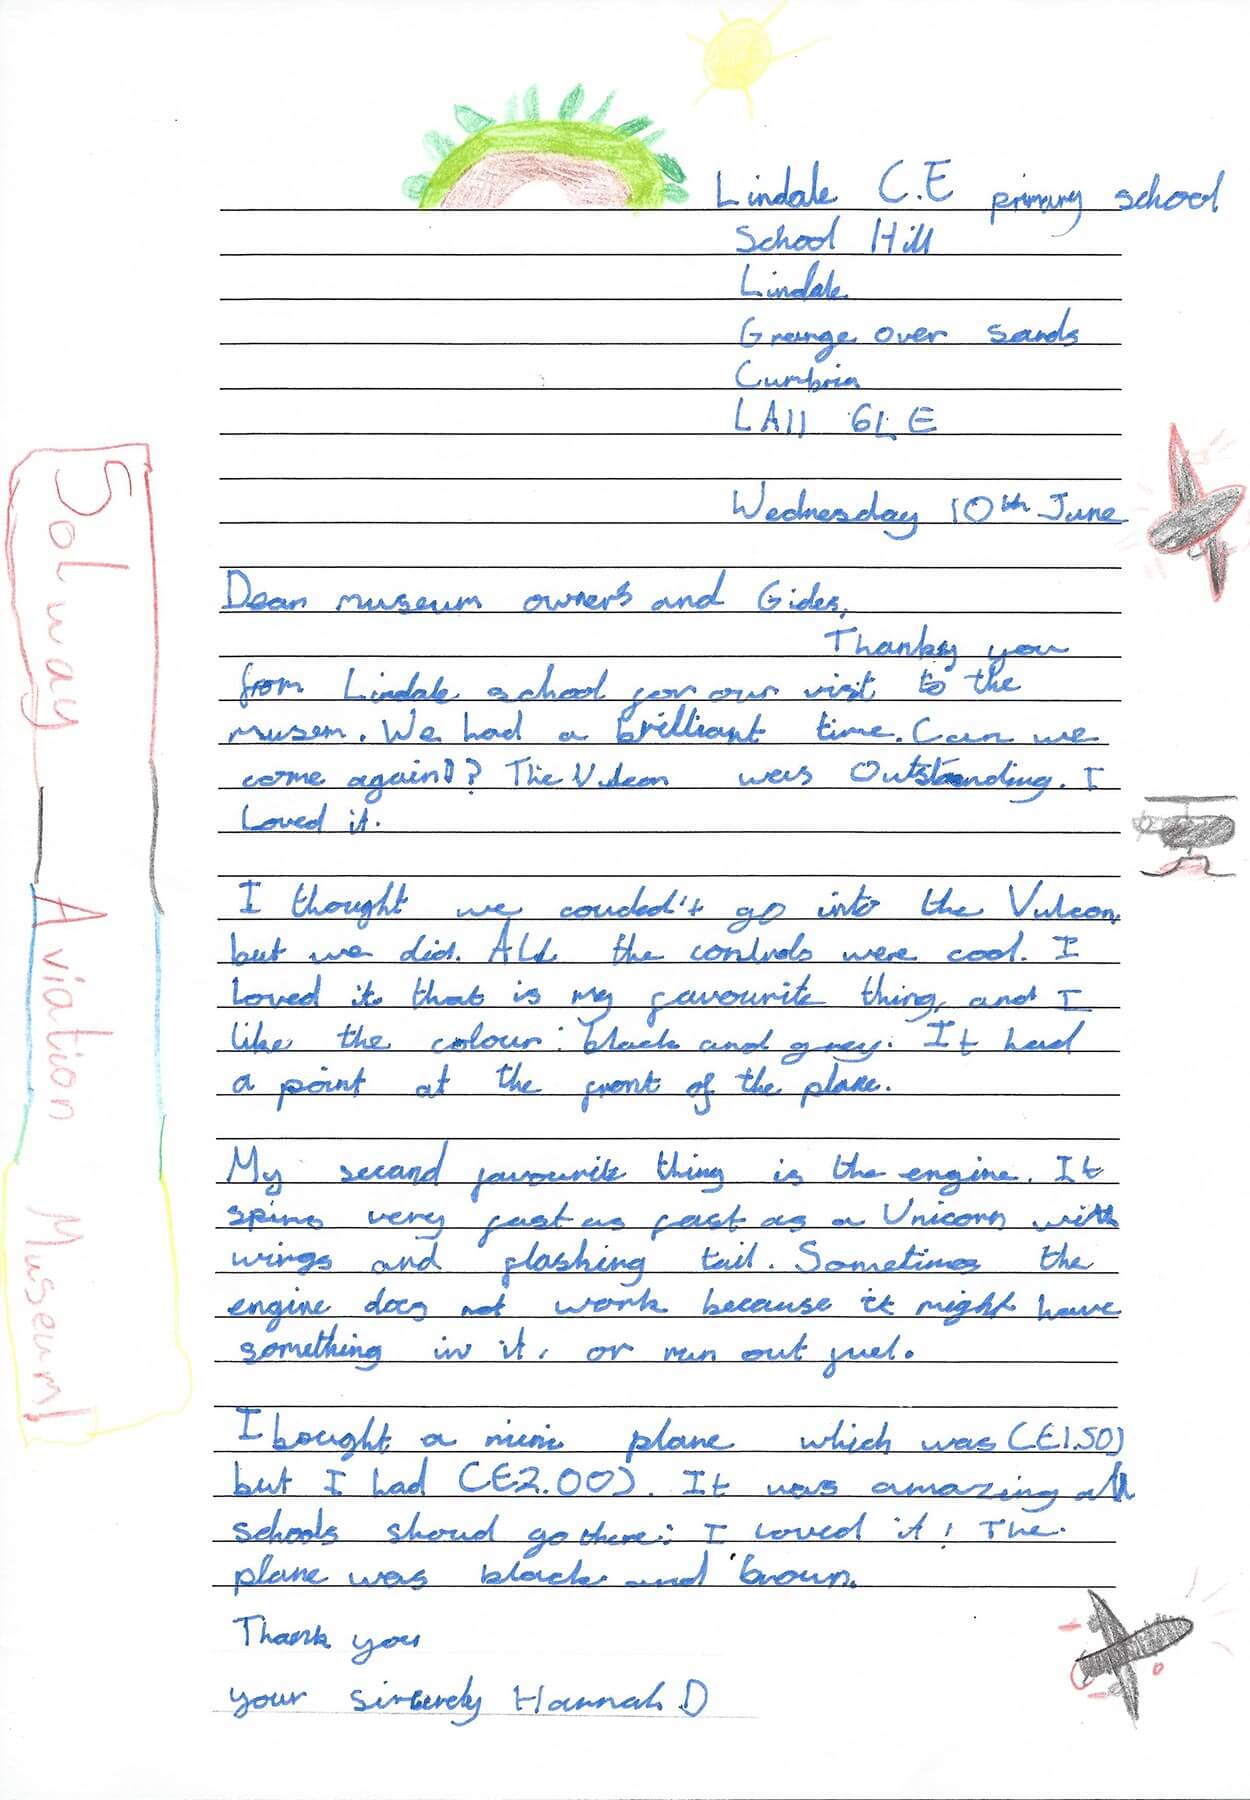 Lindale C.E primary school
School Hill
Lindale
Grange over sands
Cumbria
LA11 6LE
Wednesday 10th June
Dear museum owners and Gides,
Thanks you
from Lindale school for our visit to the
musem. We had a brilliant time. Can we
come again!? The Vulcan was Outstanding. I
Loved it.
I thought we couded't go into the Vulcan,
but we did. ALL the controls were cool. I
loved it that is my favourite thing, and I
like the colour: black and grey. It had
a point at the front of the plane.
My second favourite thing is the engine. It
spins very fast as fast as a Unicorn with
wings and flashing tail. Sometimes the
engine does not work because it might have
something in it, or run out fuel.
I bought a mini plane which was (£1.50)
but I had (£2.00). It was amazing all
schools shoud go there: I loved it! The
plane was black and brown.
Thank you
your sincerely Hannah D
Solway Aviation Museum!